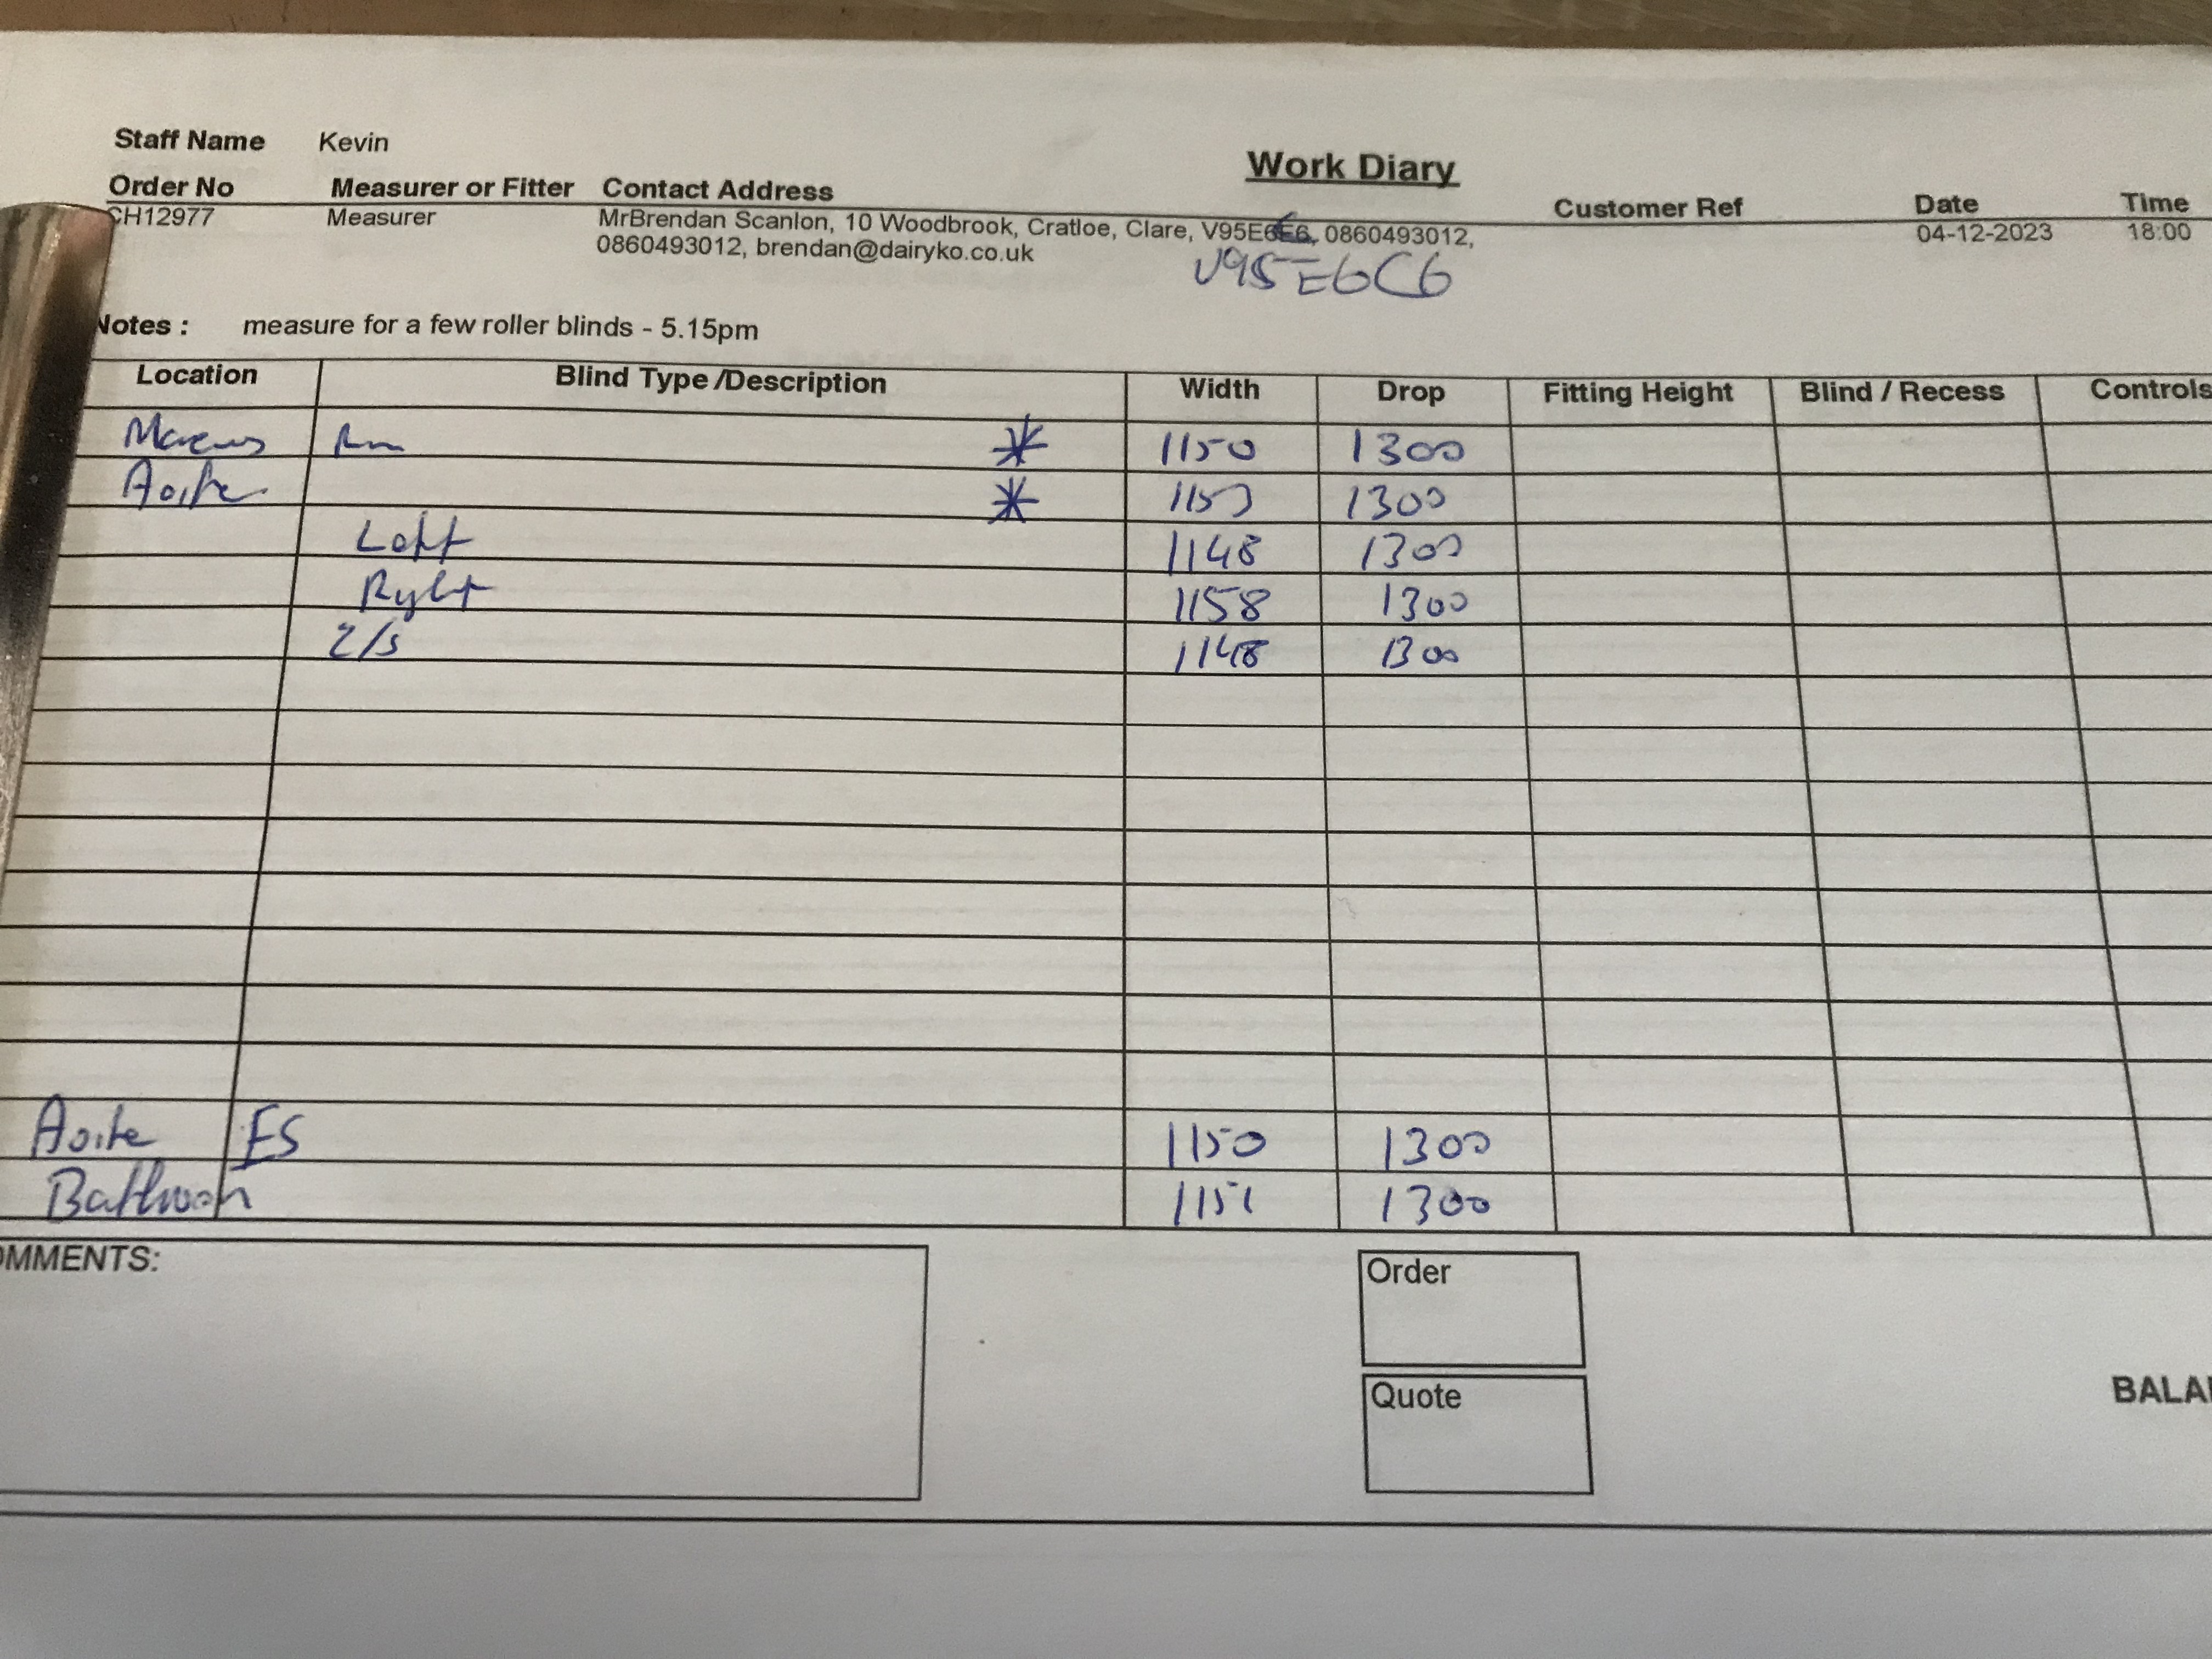 Staff Name Kevin
Work Diary
Order No Measurer or Fitter Contact Address Customer Ref Date Time
CH12977 Measurer MrBrendan Scanlon, 10 Woodbrook, Cratloe, Clare, V95E6 0860493012, 04-12-2023 18:00
0860493012, brendan@dairyko.co.uk
V95E6C6
Notes : measure for a few roller blinds - 5.15pm
Location Blind Type /Description Width Drop Fitting Height Blind / Recess Controls
Marcus Rm * 1150 1300
Aoife * 1150 1300
Left 1148 1300
Right 1158 1300
2/s 1148 1300
Aoife ES 1150 1300
Bathroom 1151 1300
OMMENTS:
Order
Quote
BALA